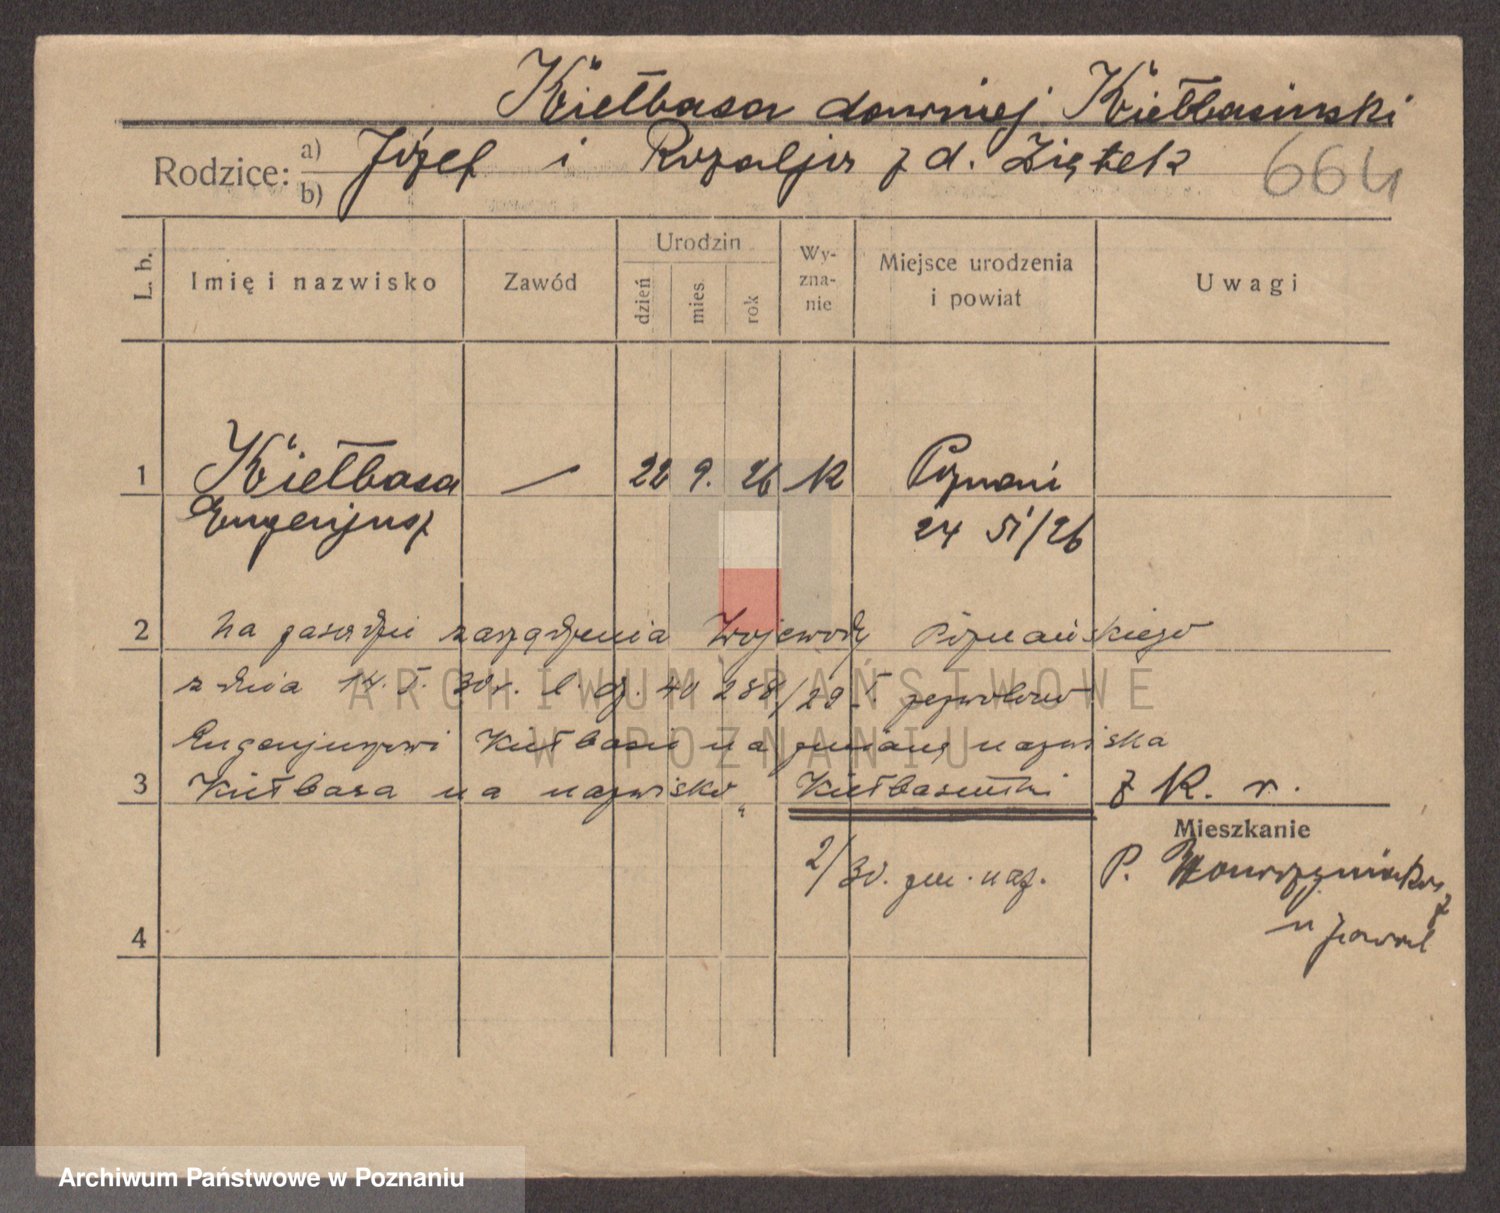 Kiełbasa dawniej Kiełbasinski
Rodzice: a) Józef i Rozalja z d. Ziętek 664
b)
L. b. Imię i nazwisko Zawód Urodzin dzień mies. rok Wyznanie Miejsce urodzenia i powiat Uwagi
1 Kiełbasa — 22 9. 26 K Poznań
Eugenjusz 24 /26
2 Na zasadzie zarządzenia Wojewody Poznańskiego
z dnia 14. I. 30 r. l. dz. 40 288/29 I zezwolono
Eugenjuszowi Kiełbasie na zmianę nazwiska
3 Kiełbasa na nazwisko Kiełbasiński z K. r.
Mieszkanie
2/30. zm. naz. P.
4
ARCHIWUM PAŃSTWOWE
W POZNANIU
Archiwum Państwowe w Poznaniu